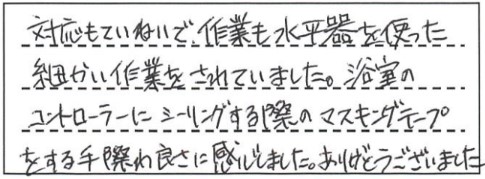 対応もていねいで、作業も水平器を使った
細かい作業をされていました。浴室の
コントローラーにシーリングする際のマスキングテープ
をする手際の良さに感心しました。ありがとうございました